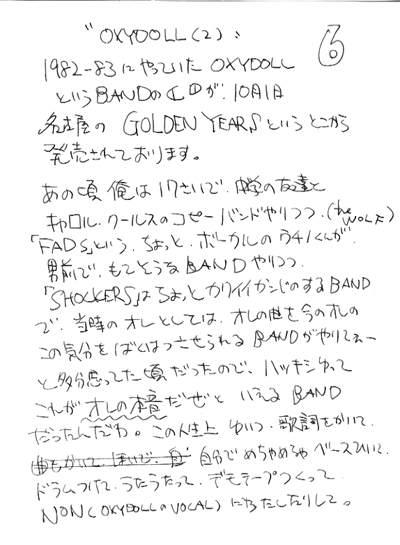 "OXYDOLL(2)"
⑥
1982-83にやっていたOXYDOLL
というBANDのCDが、10月1日
名古屋の GOLDEN YEARS というとこから
発売されております。
あの頃 俺は17さいで、中学の友達と
キャロル、クールスのコピーバンドやりつつ、(the WOLF)
「FADS」という、ちょっと、ボーカルのうち
男前で、もてそうなBANDやりつつ、
「SHOCKERS」はちょっとカワイイかんじのするBAND
で、当時のオレとしては、オレの曲を今のオレの
この気分をばくはつさせられるBANDがやりてぇー
と多分思ってた頃だったので、ハッキシゆって
これがオレの本音だぜといえるBAND
だったんだわ。この人生上 ゆいつ、歌詞をかいて、
曲もかいて、ほいで、自 自分でめちゃめちゃベースひいて、
ドラムつけて、うたうたって、デモテープつくって
NON(OXYDOLLのVOCAL)にわたしたりして。